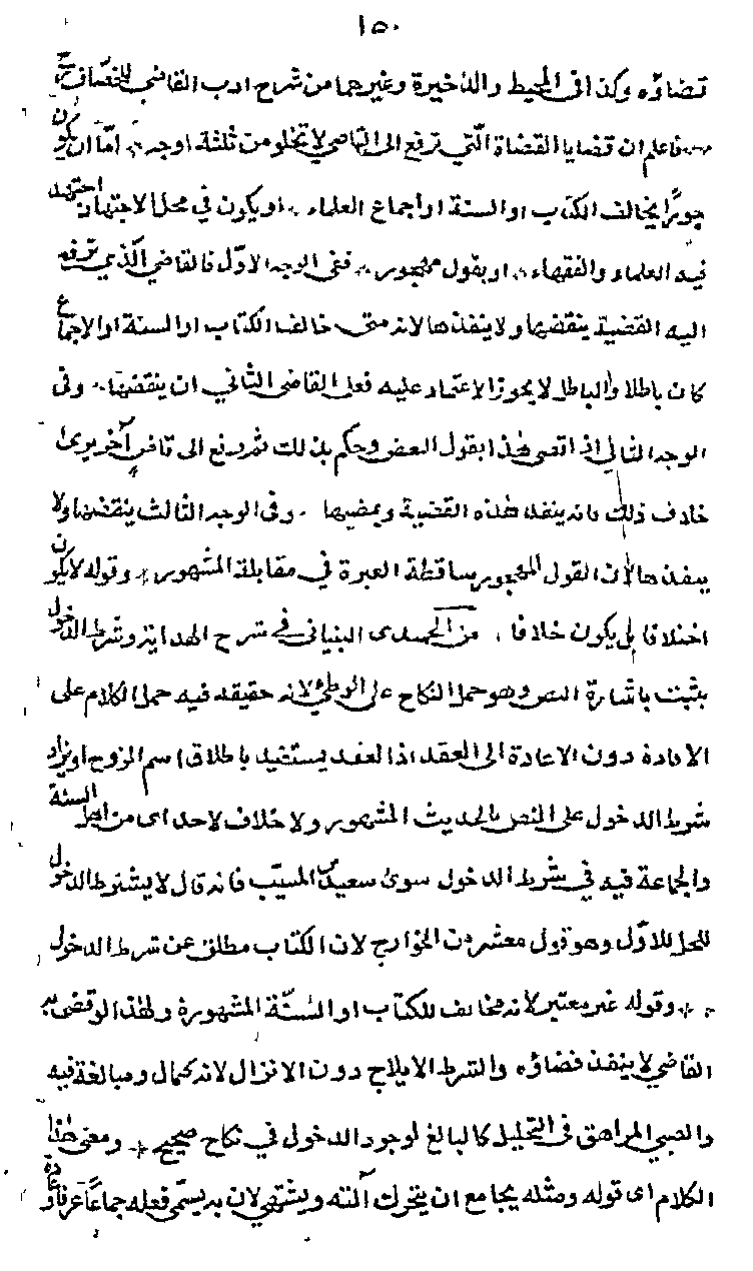 ١٥٠
قضاؤه وكذا في المحيط والذخيرة وغيرهما من شرح ادب القاضي للخصاف
فاعلم ان قضايا القضاة الّتي ترفع الى القاضي لا تخلو من ثلثة اوجه امّا ان يكون
جورًا يخالف الكتاب او السنة او اجماع العلماء او يكون في محل الاجتهاد اجتهد
فيه العلماء والفقهاء او بقول مهجور ففى الوجه الاوّل فالقاضي الّذي ترفع
اليه القضية ينقضها ولا ينفذها لانه متى خالف الكتاب او السنة او الاجماع
كان باطلا والباطل لا يجوز الاعتماد عليه فعلى القاضى الثّاني ان ينقضها وفى
الوجه الثانى اذا قضى هٰذا بقول البعض وحكم بذلك ثم رفع الى قاضٍ آخر يرى
خلاف ذلك فانه ينفذ هٰذه القضية ويمضيها وفى الوجه الثالث ينقضها ولا
ينفذها لان القول المهجور ساقطة العبرة في مقابلة المشهور وقوله لا يكون
اختلافا بل يكون خلافا من الحمدى البنيانى في شرح الهداية وشرط الدخول
يثبت باشارة النص وهو حمل النكاح على الوطئ لانه حقيقة فيه حملا لكلام على
الافادة دون الاعادة الى العقد اذ العقد يستفيد باطلاق اسم الزوج او يزاد
شرط الدخول على النص بالحديث المشهور ولا خلاف لاحد اى من اهل السنة
والجماعة فيه في شرط الدخول سوى سعيد بن المسيّب فانه قال لا يشترط الدخول
للحل للاوّل وهو قول معشر من الخوارج لان الكتاب مطلق عن شرط الدخول
وقوله غير معتبر لانه مخالف للكتاب او السّنّة المشهورة ولهٰذا لو قضى به
القاضي لا ينفذ قضاؤه والشرط الايلاج دون الانزال لانه كمال ومبالغة فيه
والصبي المراهق فى التحليل كالبالغ لوجود الدخول في نكاح صحيح ومعنى هٰذا
الكلام اى قوله ومثله يجامع ان يتحرك آلته ويشتهي لان به يسمّى فعله جماعًا عرفا وعادة